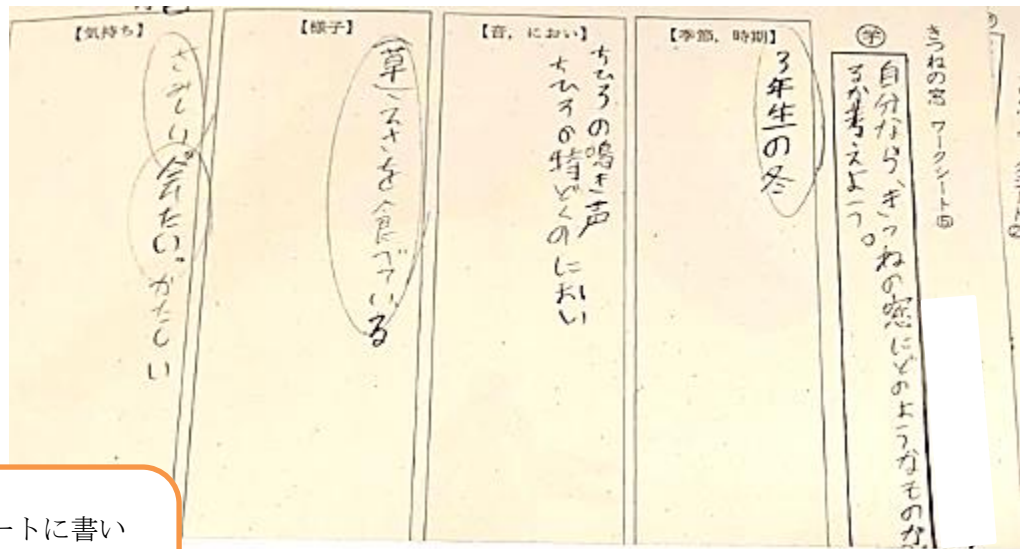 きつねの窓 ワークシート⑤
学
自分なら、きつねの窓にどのようなものが
るか考えよう。
【季節, 時期】
3年生の冬
【音, におい】
ちひろの鳴き声
ちひろの特どくのにおい
【様子】
草こるさを食べている
【気持ち】
さみしい 会たい。かなしい
ートに書い